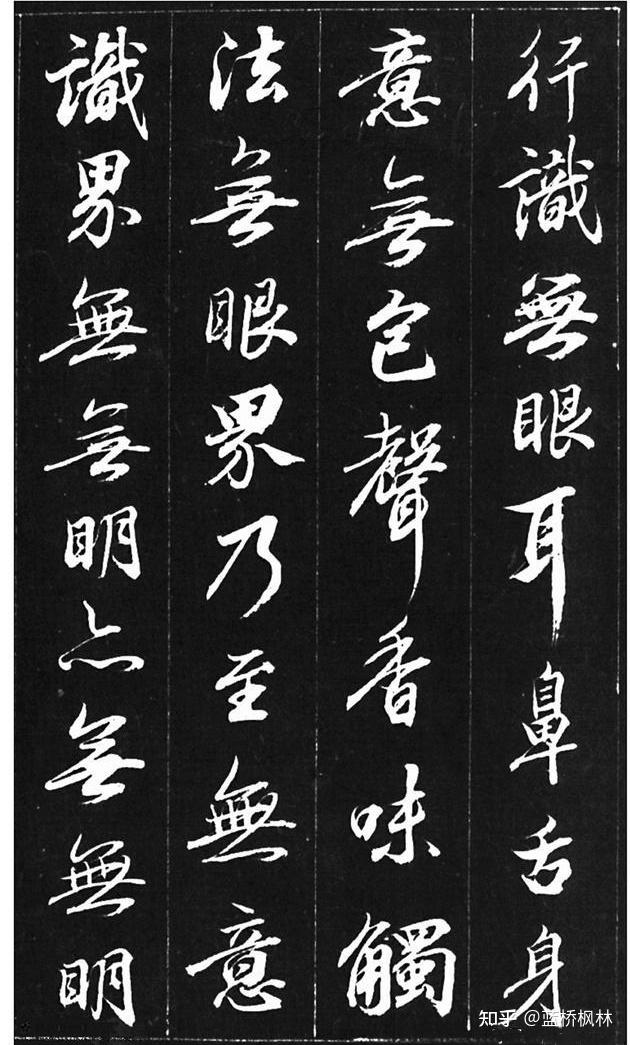 行識無眼耳鼻舌身
意無色聲香味觸
法無眼界乃至無意
識界無無明亦無無明
知乎 @蓝桥枫林